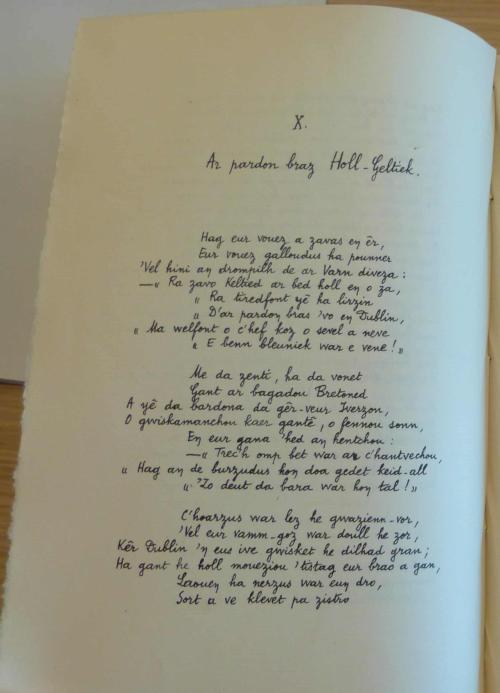 X.
Ar pardon braz Holl-Geltiek.
Hag eur vouez a zavas en êr,
Eur vouez galloudus ha pounner
'Vel hini an drompilh de ar Varn diveza :
— „ Ra zavo Keltied ar bed holl en o za,
„ Ra tiredfont yê ha birzin
„ D'ar pardon bras 'vo en Dublin,
„ Ma welfont o c'hef koz o sevel a neve
„ E benn bleuniek war e vene ! „
Me da zenti, ha da vonet
Gant ar bagadou Bretoned
A yê da bardona da gêr-veur Iverzon,
O gwiskamanchou kaer gantê, o fennou sonn,
En eur gana 'hed an hentchou :
— „ Trec'h omp bet war an c'hantvechou,
„ Hag an de burzudus hon doa gedet keid-all
„ 'Zo deut da bara war hon tal ! „
C'hoarzus war lez he gwazienn-vor,
'Vel eur vamm-goz war doull he zor,
Kêr Dublin 'n eus ive gwisket he dilhad gran ;
Ha gant he holl moueziou 'tistag eur brao a gan,
Laouen ha nerzus war eun dro,
Sort a ve klevet pa zistro